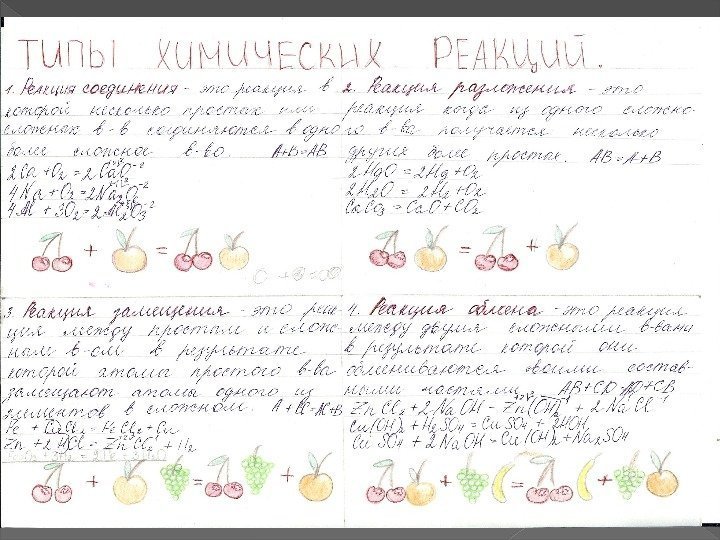 ТИПЫ ХИМИЧЕСКИХ РЕАКЦИЙ.
1. Реакция соединения - это реакция в
которой несколько простых или
сложных в-в соединяются в одно
более сложное в-во. A+B=AB
2Ca + O₂ = 2CaO
4Na + O₂ = 2Na₂O
4Al + 3O₂ = 2Al₂O₃
+ =
2. Реакция разложения - это
реакция когда из одного сложно-
го в-ва получается несколько
других более простых. AB=A+B
2HgO = 2Hg + O₂
2H₂O = 2H₂ + O₂
CaCO₃ = CaO + CO₂
= +
3. Реакция замещения - это реак-
ция между простым и слож-
ным в-ом в результате
которой атомы простого в-ва
замещают атомы одного из
элементов в сложном. A + BC=AC+B
Zn + 2HCl = ZnCl₂ + H₂
+ = +
4. Реакция обмена - это реакция
между двумя сложными в-вами
в результате которой они
обмениваются своими состав-
ными частями. AB+CD=AD+CB
ZnCl₂ + 2NaOH = Zn(OH)₂ + 2NaCl
Cu(OH)₂ + H₂SO₄ = CuSO₄ + 2HOH
CuSO₄ + 2NaOH = Cu(OH)₂ + Na₂SO₄
+ = +